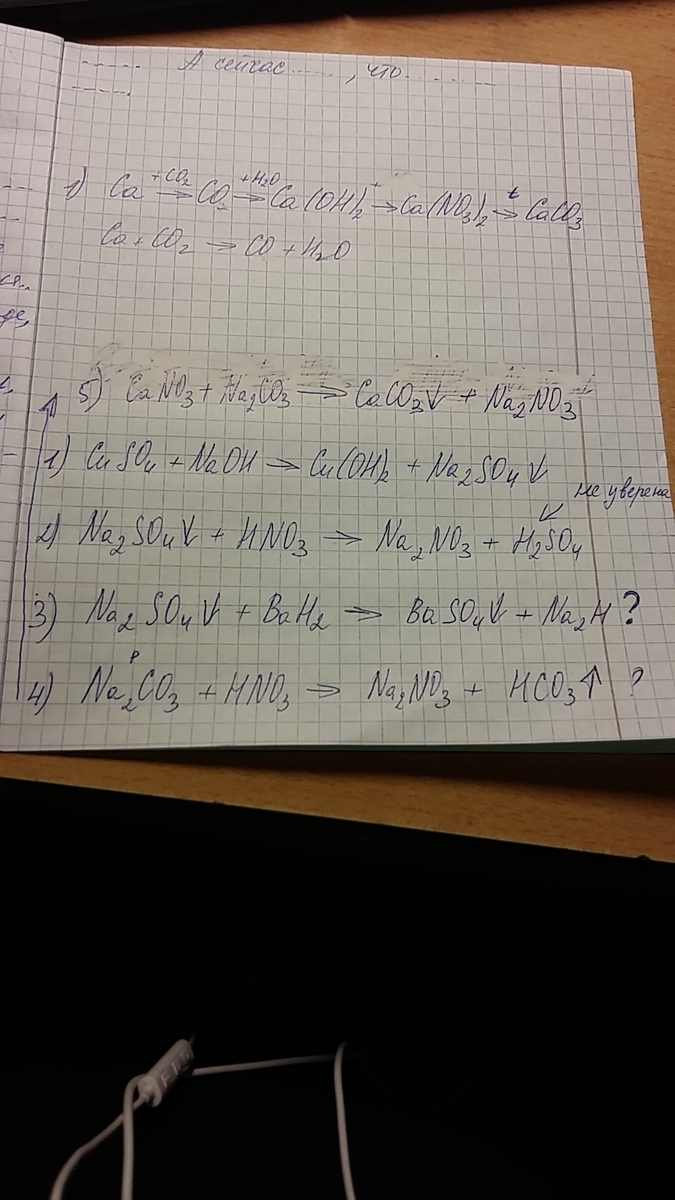 ----- А сейчас ....., что .........
-----.
1) Ca +CO₂→ CO₂ +H₂O→ Ca(OH)₂ +→ Ca(NO₃)₂ t→ CaCO₃
Ca + CO₂ → CO + H₂O
5) CaNO₃ + Na₂CO₃ → CaCO₃↓ + Na₂NO₃
1) CuSO₄ + NaOH → Cu(OH)₂ + Na₂SO₄ ↓
не уверена
2) Na₂SO₄↓ + HNO₃ → Na₂NO₃ + H₂SO₄
3) Na₂SO₄↓ + BaH₂ → BaSO₄↓ + Na₂H ?
р
4) Na₂CO₃ + HNO₃ → Na₂NO₃ + HCO₃↑ ?